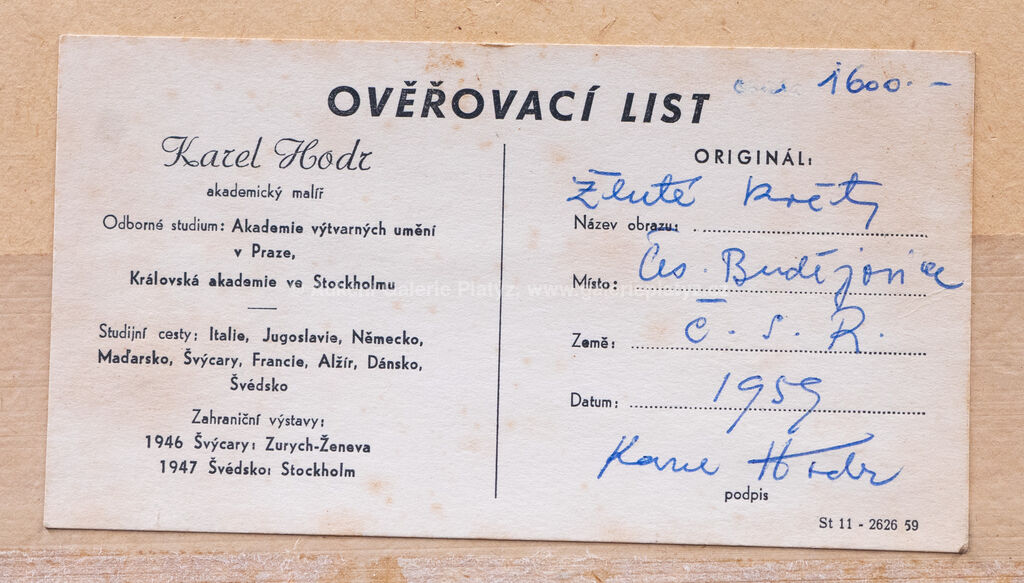 OVĚŘOVACÍ LIST
1600.-
Karel Hodr
akademický malíř
Odborné studium: Akademie výtvarných umění
v Praze,
Královská akademie ve Stockholmu
Studijní cesty: Italie, Jugoslavie, Německo,
Maďarsko, Švýcary, Francie, Alžír, Dánsko,
Švédsko
Zahraniční výstavy:
1946 Švýcary: Zurych-Ženeva
1947 Švédsko: Stockholm
ORIGINÁL:
Žluté květy
Název obrazu:
Místo: Čes. Budějovice
Země: Č.S.R.
Datum: 1959
Karel Hodr
podpis
St 11 - 2626 59